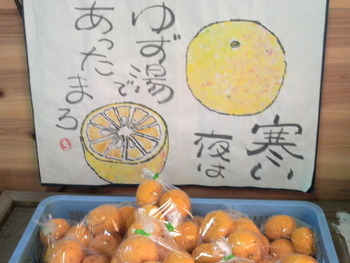 寒い
夜は
ゆず湯で
あったまろ